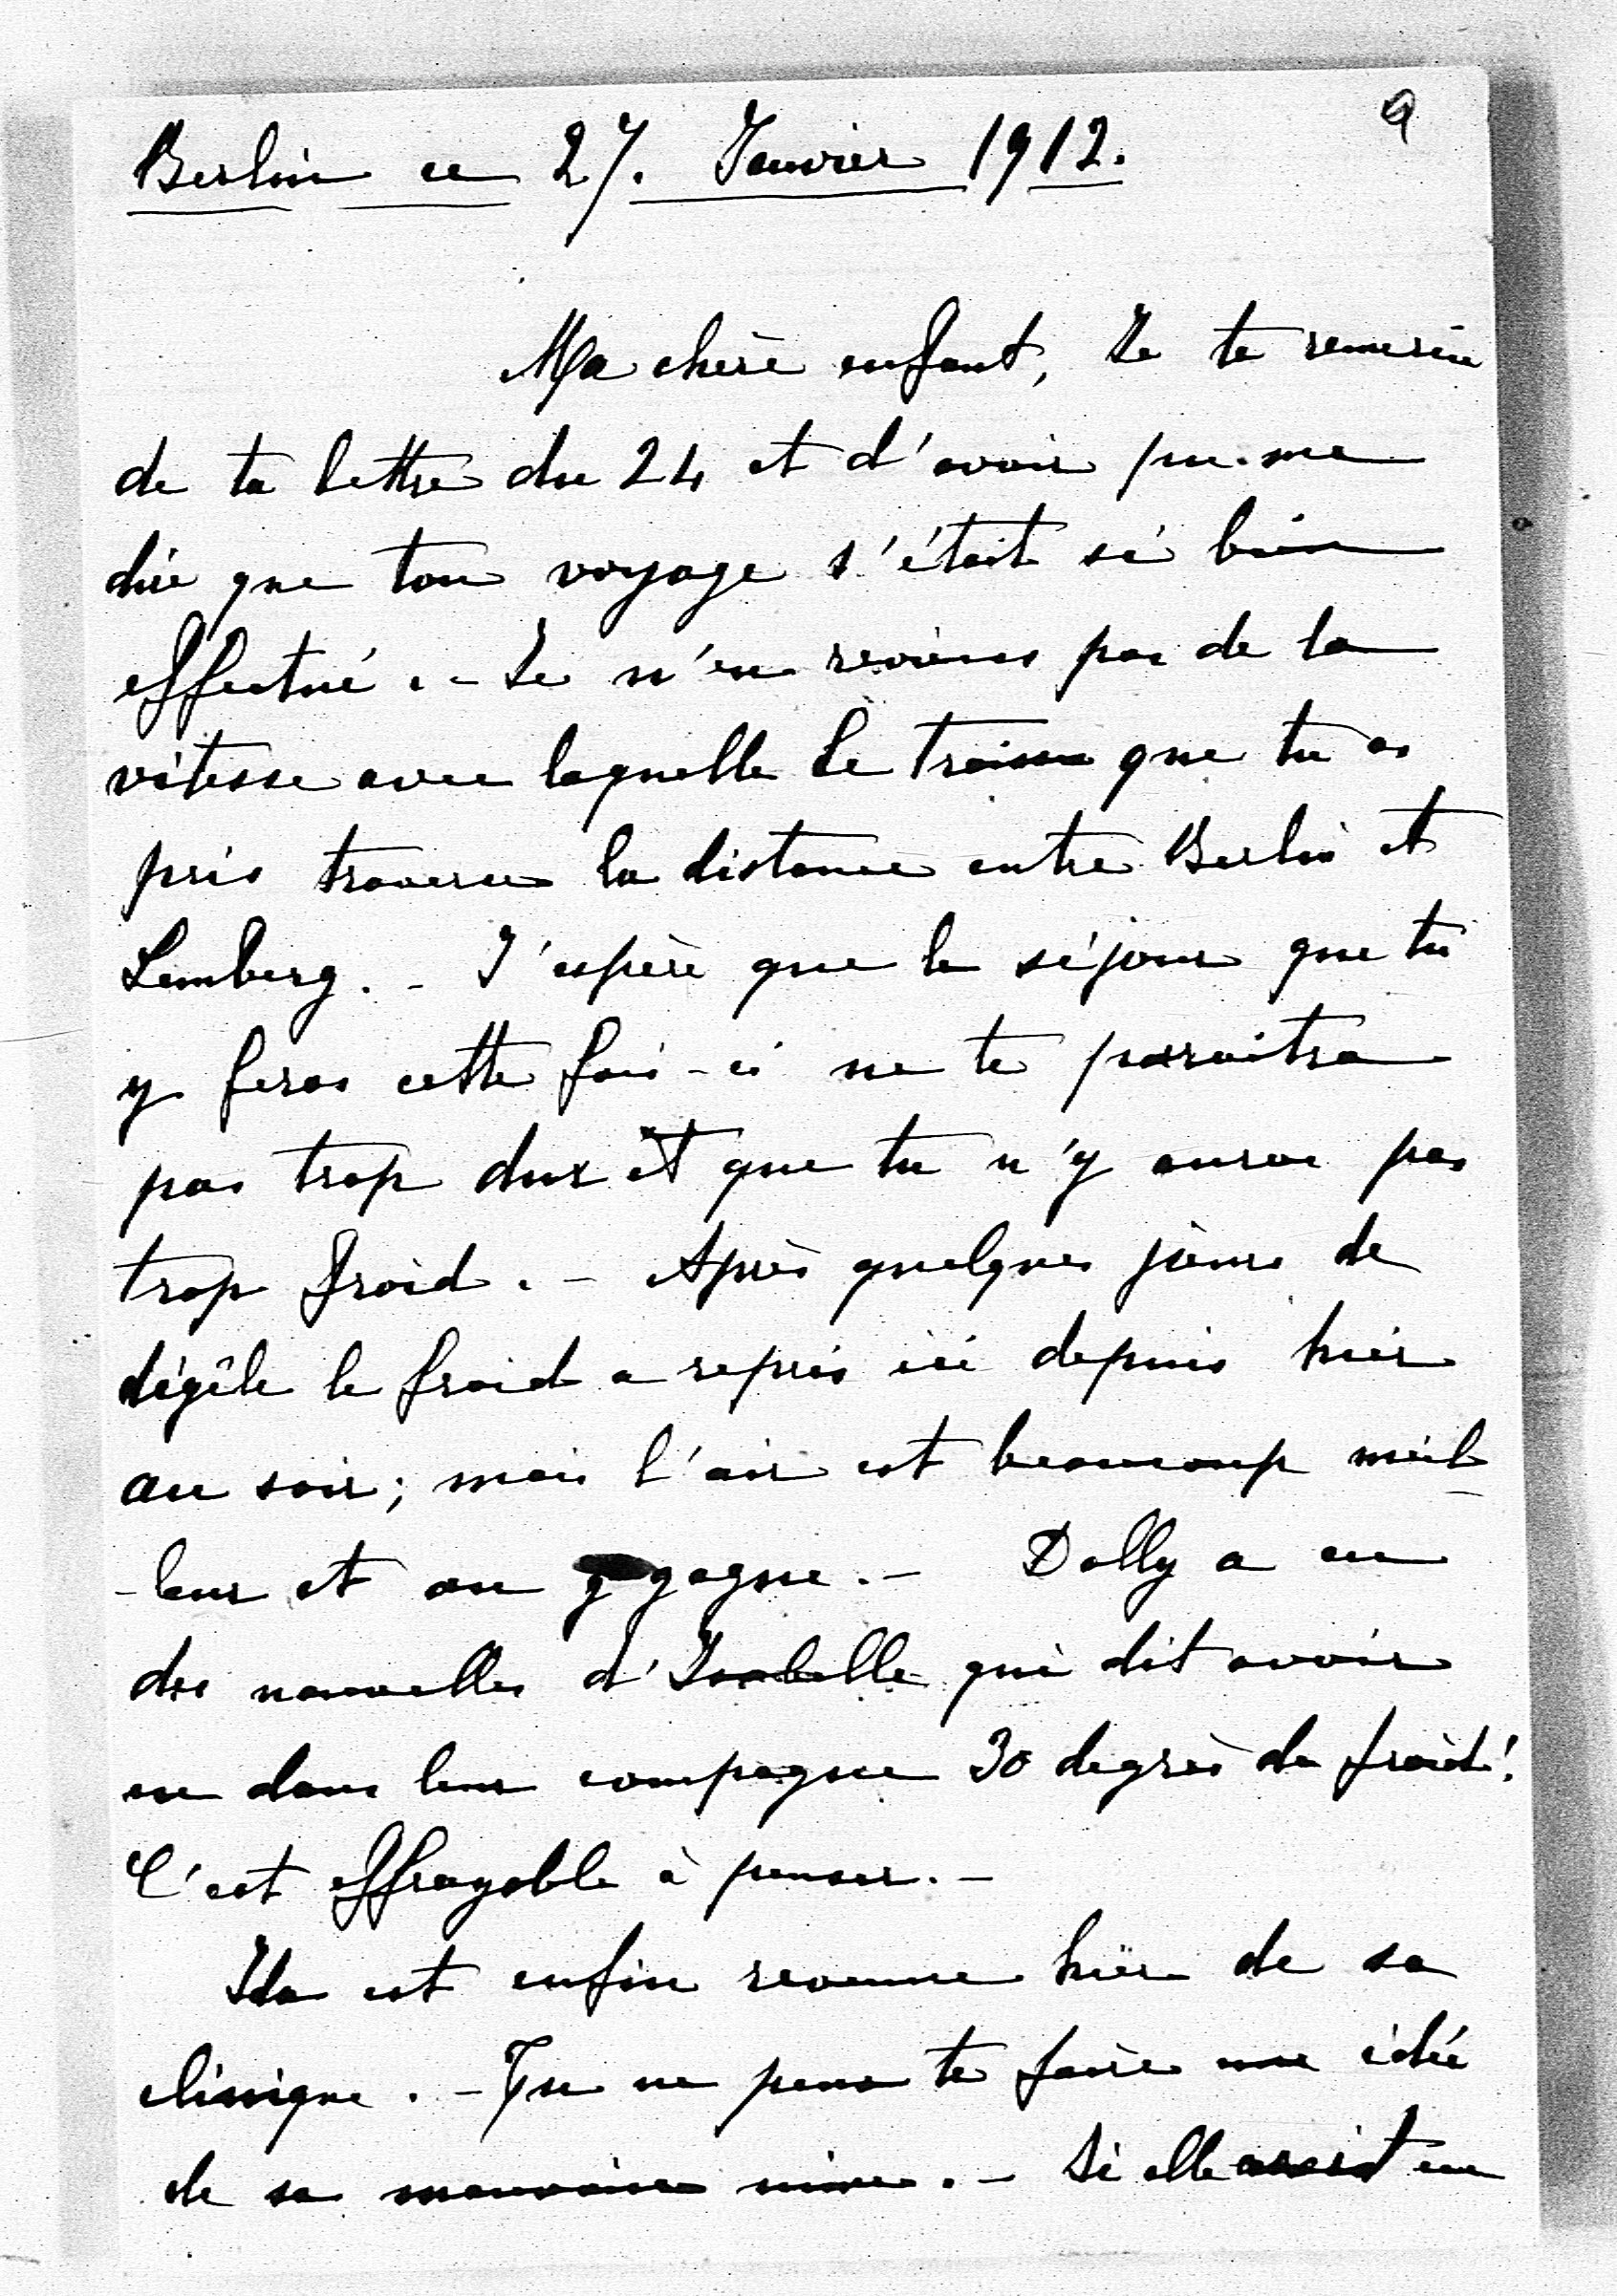 9
Berlin ce 27. Janvier 1912.
Ma chère enfant, Je te remercie
de ta lettre du 24 et d'avoir pu me
dire que ton voyage s'était si bien
effectué. - Je n'en reviens pas de la
vitesse avec laquelle le train que tu as
pris traverse la distance entre Berlin et
Lemberg. - J'espère que le séjour que tu
y feras cette fois-ci ne te paraitra
pas trop dur et que tu n'y auras pas
trop froid. - Après quelques jours de
dégèle le froid a repris ici depuis hier
au soir; mais l'air est beaucoup meil
-leur et on y gagne. - Dolly a eu
des nouvelles d'Isabelle qui dit avoir
eu dans leur campagne 30 degrès de froid!
C'est effrayable à penser. -
Ida est enfin revenue hier de sa
clinique. - Tu ne peux te faire une idée
de sa mauvaise mine. - Si elle avait eu